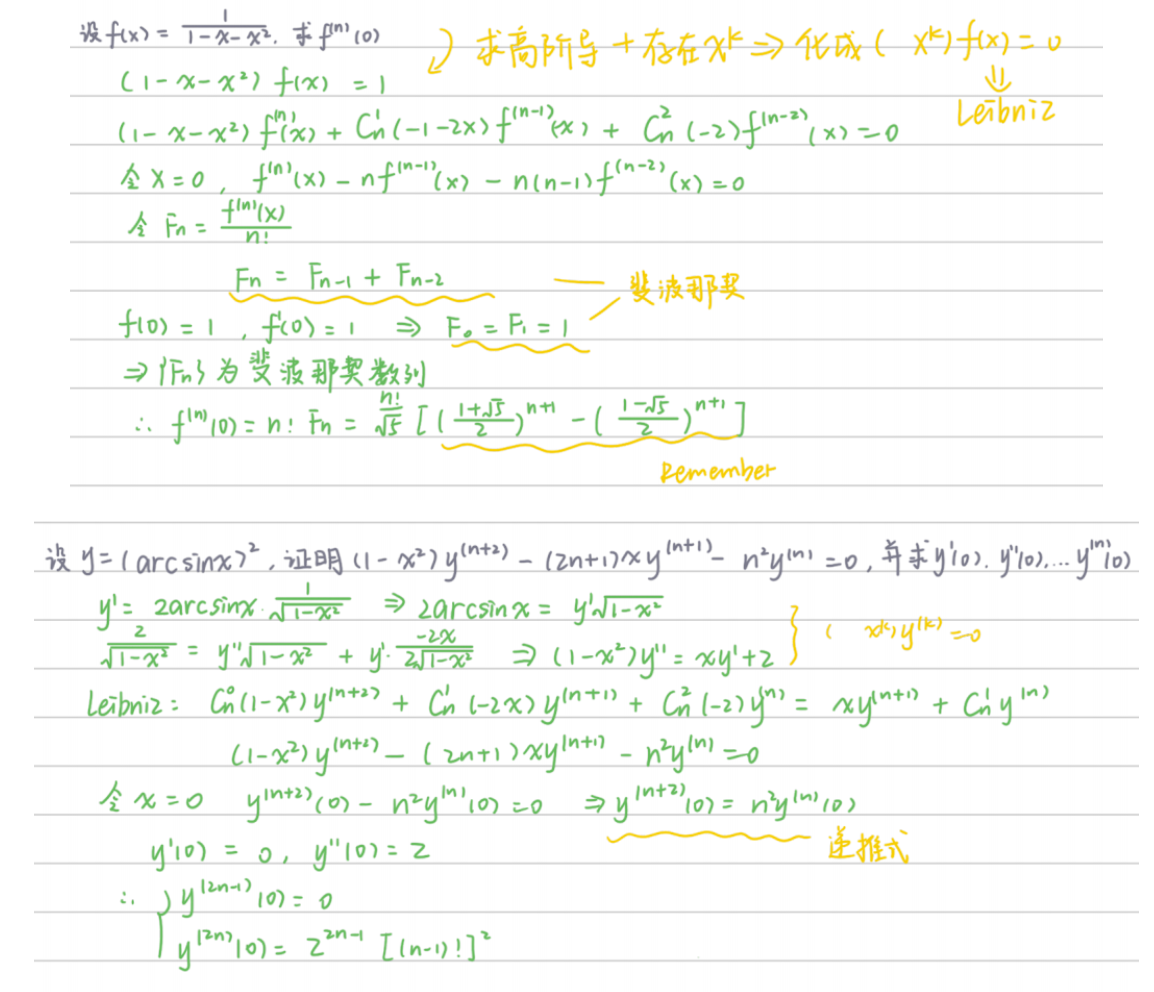 设 f(x) = 1/(1-x-x²). 求 f⁽ⁿ⁾(0)
求高阶导 + 存在 xᵏ ⇒ 化成 ( xᵏ) f(x) = 0
⇓
Leibniz
(1-x-x²) f(x) = 1
(1-x-x²) f⁽ⁿ⁾(x) + Cₙ¹(-1-2x) f⁽ⁿ⁻¹⁾(x) + Cₙ²(-2) f⁽ⁿ⁻²⁾(x) = 0
令 x=0, f⁽ⁿ⁾(x) - n f⁽ⁿ⁻¹⁾(x) - n(n-1) f⁽ⁿ⁻²⁾(x) = 0
令 Fₙ = f⁽ⁿ⁾(x)/n!
Fₙ = Fₙ₋₁ + Fₙ₋₂
斐波那契
f(0) = 1, f'(0) = 1 ⇒ F₀ = F₁ = 1
⇒ {Fₙ} 为斐波那契数列
∴ f⁽ⁿ⁾(0) = n! Fₙ = n!/√5 [((1+√5)/2)ⁿ⁺¹ - ((1-√5)/2)ⁿ⁺¹]
Remember
设 y=(arcsinx)², 证明 (1-x²)y⁽ⁿ⁺²⁾ - (2n+1)xy⁽ⁿ⁺¹⁾ - n²y⁽ⁿ⁾ = 0, 并求 y'(0). y''(0). … y⁽ⁿ⁾(0)
y' = 2arcsinx · 1/√(1-x²) ⇒ 2arcsinx = y'√(1-x²)
2/√(1-x²) = y''√(1-x²) + y'· -2x/(2√(1-x²)) ⇒ (1-x²)y'' = xy'+2
} ( xᵏ)y⁽ᵏ⁾ = 0
Leibniz: Cₙ⁰(1-x²)y⁽ⁿ⁺²⁾ + Cₙ¹(-2x)y⁽ⁿ⁺¹⁾ + Cₙ²(-2)y⁽ⁿ⁾ = xy⁽ⁿ⁺¹⁾ + Cₙ¹y⁽ⁿ⁾
(1-x²)y⁽ⁿ⁺²⁾ - (2n+1)xy⁽ⁿ⁺¹⁾ - n²y⁽ⁿ⁾ = 0
令 x=0 y⁽ⁿ⁺²⁾(0) - n²y⁽ⁿ⁾(0) = 0 ⇒ y⁽ⁿ⁺²⁾(0) = n²y⁽ⁿ⁾(0)
递推式
y'(0) = 0, y''(0) = 2
∴ { y⁽²ⁿ⁻¹⁾(0) = 0
y⁽²ⁿ⁾(0) = 2²ⁿ⁻¹ [(n-1)!]²